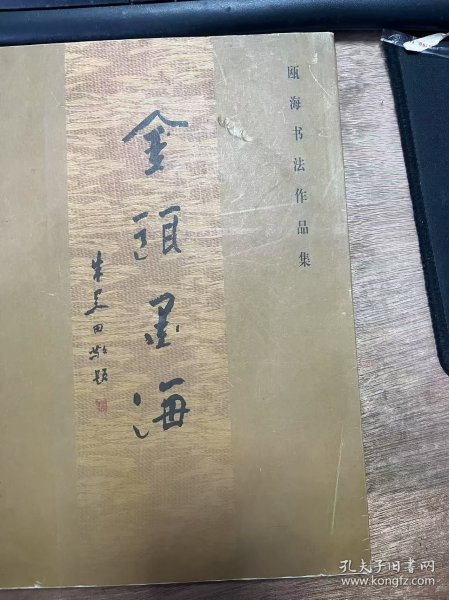 瓯海书法作品集
金頭墨海
朱关田敬题
孔夫子旧书网
www.kongfz.com